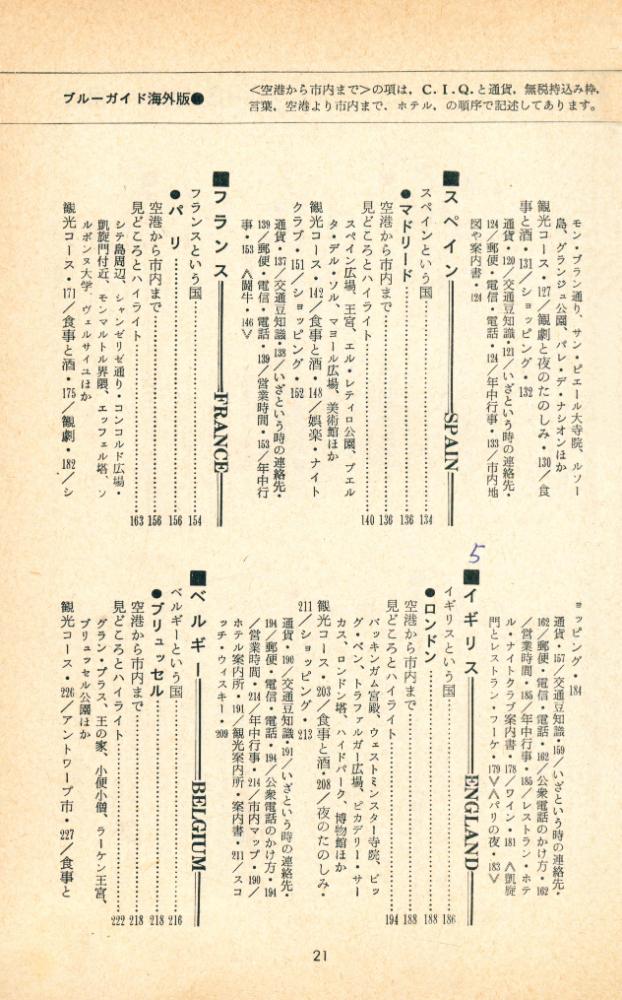 ブルーガイド海外版●
<空港から市内まで>の項は，C.I.Q.と通貨，無税持込み枠，
言葉，空港より市内まで，ホテル，の順序で記述してあります。
モン・ブラン通り、サン・ピエール大寺院、ルソー
島、グランジュ公園、パレ・デ・ナシオンほか
観光コース・127／観劇と夜のたのしみ・130／食
事と酒・131／ショッピング・132
通貨・120／交通豆知識・121／いざという時の連絡先・
124／郵便・電信・電話・124／年中行事・133／市内地
図や案内書・124
■スペイン SPAIN
スペインという国 134
●マドリード 136
空港から市内まで 136
見どころとハイライト 140
スペイン広場、王宮、エル・レティロ公園、プエル
タ・デル・ソル、マヨール広場、美術館ほか
観光コース・142／食事と酒・148／娯楽・ナイト
クラブ・151／ショッピング・152
通貨・137／交通豆知識・138／いざという時の連絡先・
139／郵便・電信・電話・139／営業時間・153／年中行
事・153 〈闘牛・146〉
■フランス FRANCE
フランスという国 154
●パリ 156
空港から市内まで 156
見どころとハイライト 163
シテ島周辺、シャンゼリゼ通り・コンコルド広場・
凱旋門付近、モンマルトル界隈、エッフェル塔、ソ
ルボンヌ大学、ヴェルサイユほか
観光コース・171／食事と酒・175／観劇・182／シ
ョッピング・184
通貨・157／交通豆知識・159／いざという時の連絡先・
162／郵便・電信・電話・162／公衆電話のかけ方・162
／営業時間・185／年中行事・185／レストラン・ホテ
ル・ナイトクラブ案内書・178／ワイン・181 〈凱旋
門とレストラン・フーケ・179〉〈パリの夜・183〉
5
■イギリス ENGLAND
イギリスという国 186
●ロンドン 188
空港から市内まで 188
見どころとハイライト 194
バッキンガム宮殿、ウェストミンスター寺院、ビッ
グ・ベン、トラファルガー広場、ピカデリー・サー
カス、ロンドン塔、ハイドパーク、博物館ほか
観光コース・203／食事と酒・208／夜のたのしみ・
211／ショッピング・213
通貨・190／交通豆知識・191／いざという時の連絡先・
194／郵便・電信・電話・194／公衆電話のかけ方・194
／営業時間・214／年中行事・214／市内マップ・190／
ホテル案内所・191／観光案内所・案内書・211／スコ
ッチ・ウィスキー・209
■ベルギー BELGIUM
ベルギーという国 216
●ブリュッセル 218
空港から市内まで 218
見どころとハイライト 222
グラン・プラス、王の家、小便小僧、ラーケン王宮、
ブリュッセル公園ほか
観光コース・226／アントワープ市・227／食事と
21